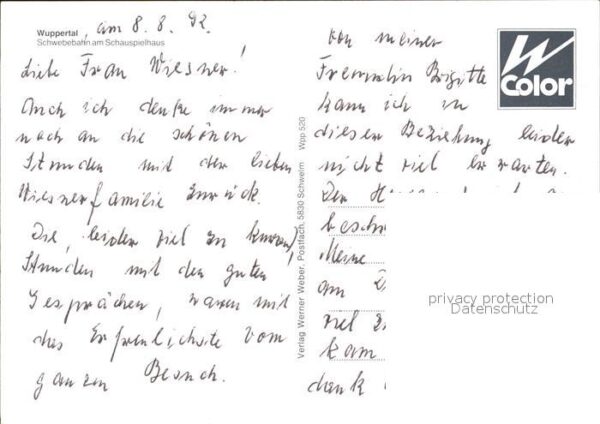 Wuppertal, am 8. 8. 92.
Schwebebahn am Schauspielhaus
Liebe Frau Wiesner!
Auch ich denke immer
noch an die schönen
Stunden mit der lieben
Wiesnerfamilie zurück.
Die, leider viel zu kurzen,
Stunden mit den guten
Gesprächen, waren mit
das Erfreulichste vom
ganzen Besuch.
Verlag Werner Weber, Postfach, 5830 Schwelm Wpp 520
von meiner
Freundin Brigitte
kann ich in
dieser Beziehung leider
nicht viel erwarten.
Der
besch
Meine
am
viel
kam
denk
W
Color
privacy protection
Datenschutz